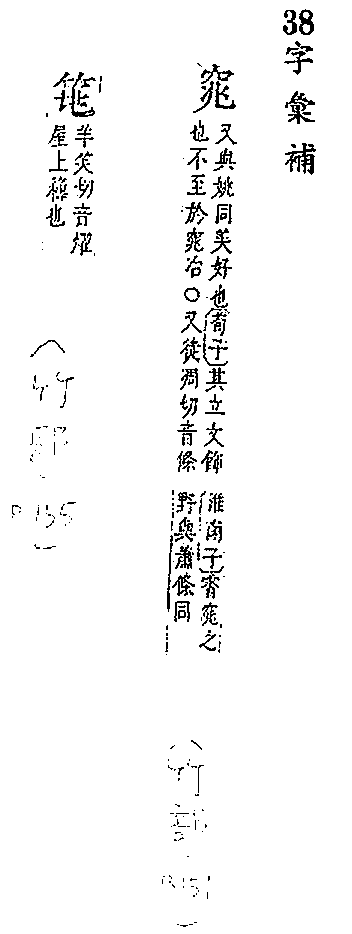 38字彙補
窕
又與姚同美好也荀子其立文飾
也不至於窕冶○又徒凋切音條
淮南子霄窕之
野與蕭條同
(竹部
P.151)
羊笑切音燿
屋上 也
(竹部
P.155)